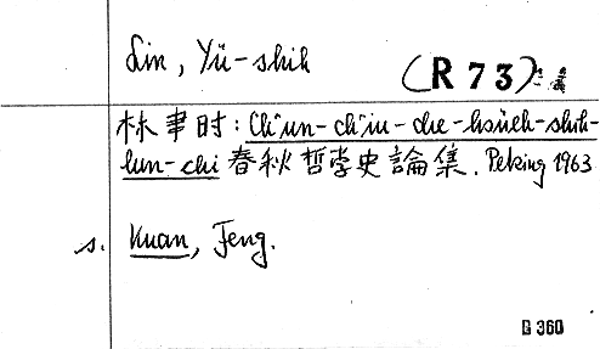 Lin, Yü-shih
(R 73)
林聿时: Ch'un-ch'iu-che-hsüeh-shih-
lun-chi 春秋哲学史論集. Peking 1963
s. Kuan, Feng.
B 360